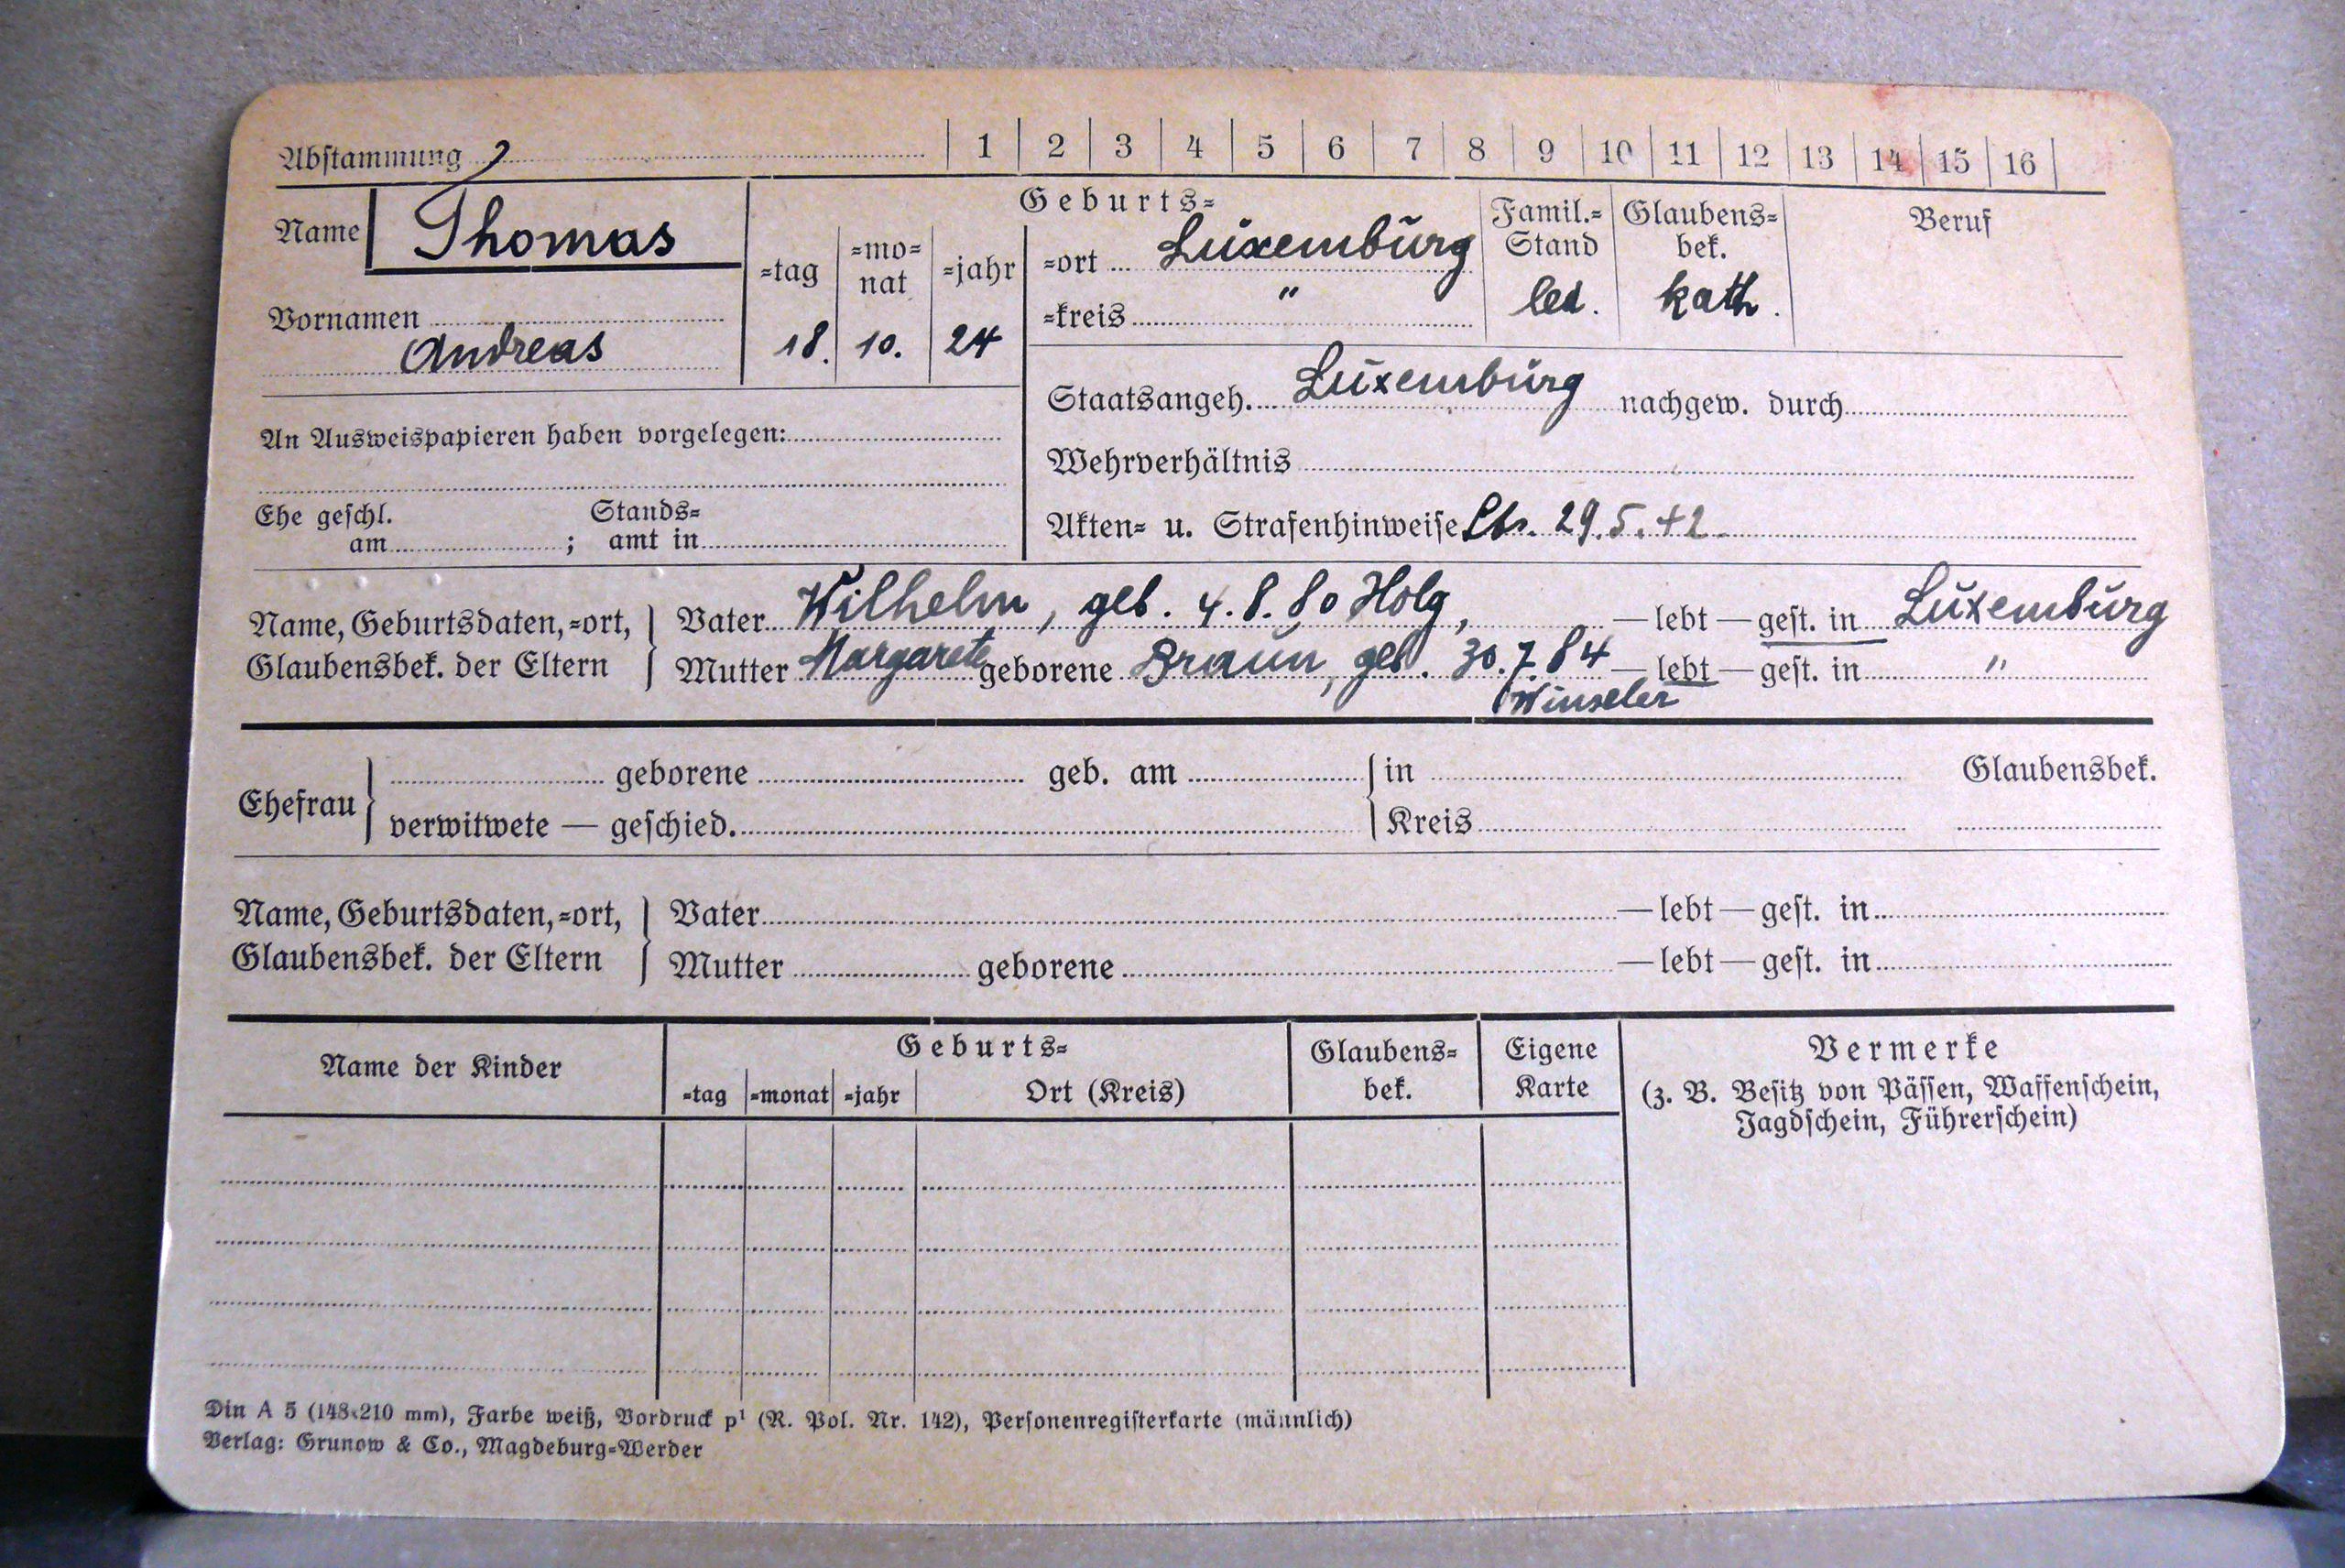 Abstammung 1 2 3 4 5 6 7 8 9 10 11 12 13 14 15 16
Name Thomas
Vornamen
Andreas
Geburts=
=tag =mo=nat =jahr
18. 10. 24
=ort Luxemburg
=kreis "
Famil.=Stand
led.
Glaubens=bek.
kath.
Beruf
An Ausweispapieren haben vorgelegen:
Staatsangeh. Luxemburg nachgew. durch
Wehrverhältnis
Ehe geschl. am ; Stands=amt in
Akten= u. Strafenhinweise 29.5.42
Name, Geburtsdaten, =ort, Vater Wilhelm, geb. 4.8.80 , — lebt — gest. in Luxemburg
Glaubensbek. der Eltern Mutter Margarete geborene Braun, geb. 30.7.84 — lebt — gest. in "
Winseler
Ehefrau geborene geb. am in Glaubensbek.
verwitwete — geschied. Kreis
Name, Geburtsdaten, =ort, Vater — lebt — gest. in
Glaubensbek. der Eltern Mutter geborene — lebt — gest. in
Name der Kinder
Geburts=
=tag =monat =jahr Ort (Kreis)
Glaubens=
bek.
Eigene
Karte
Vermerke
(z. B. Besitz von Pässen, Waffenschein,
Jagdschein, Führerschein)
Din A 5 (148×210 mm), Farbe weiß, Vordruck p¹ (R. Pol. Nr. 142), Personenregisterkarte (männlich)
Verlag: Grunow & Co., Magdeburg=Werder